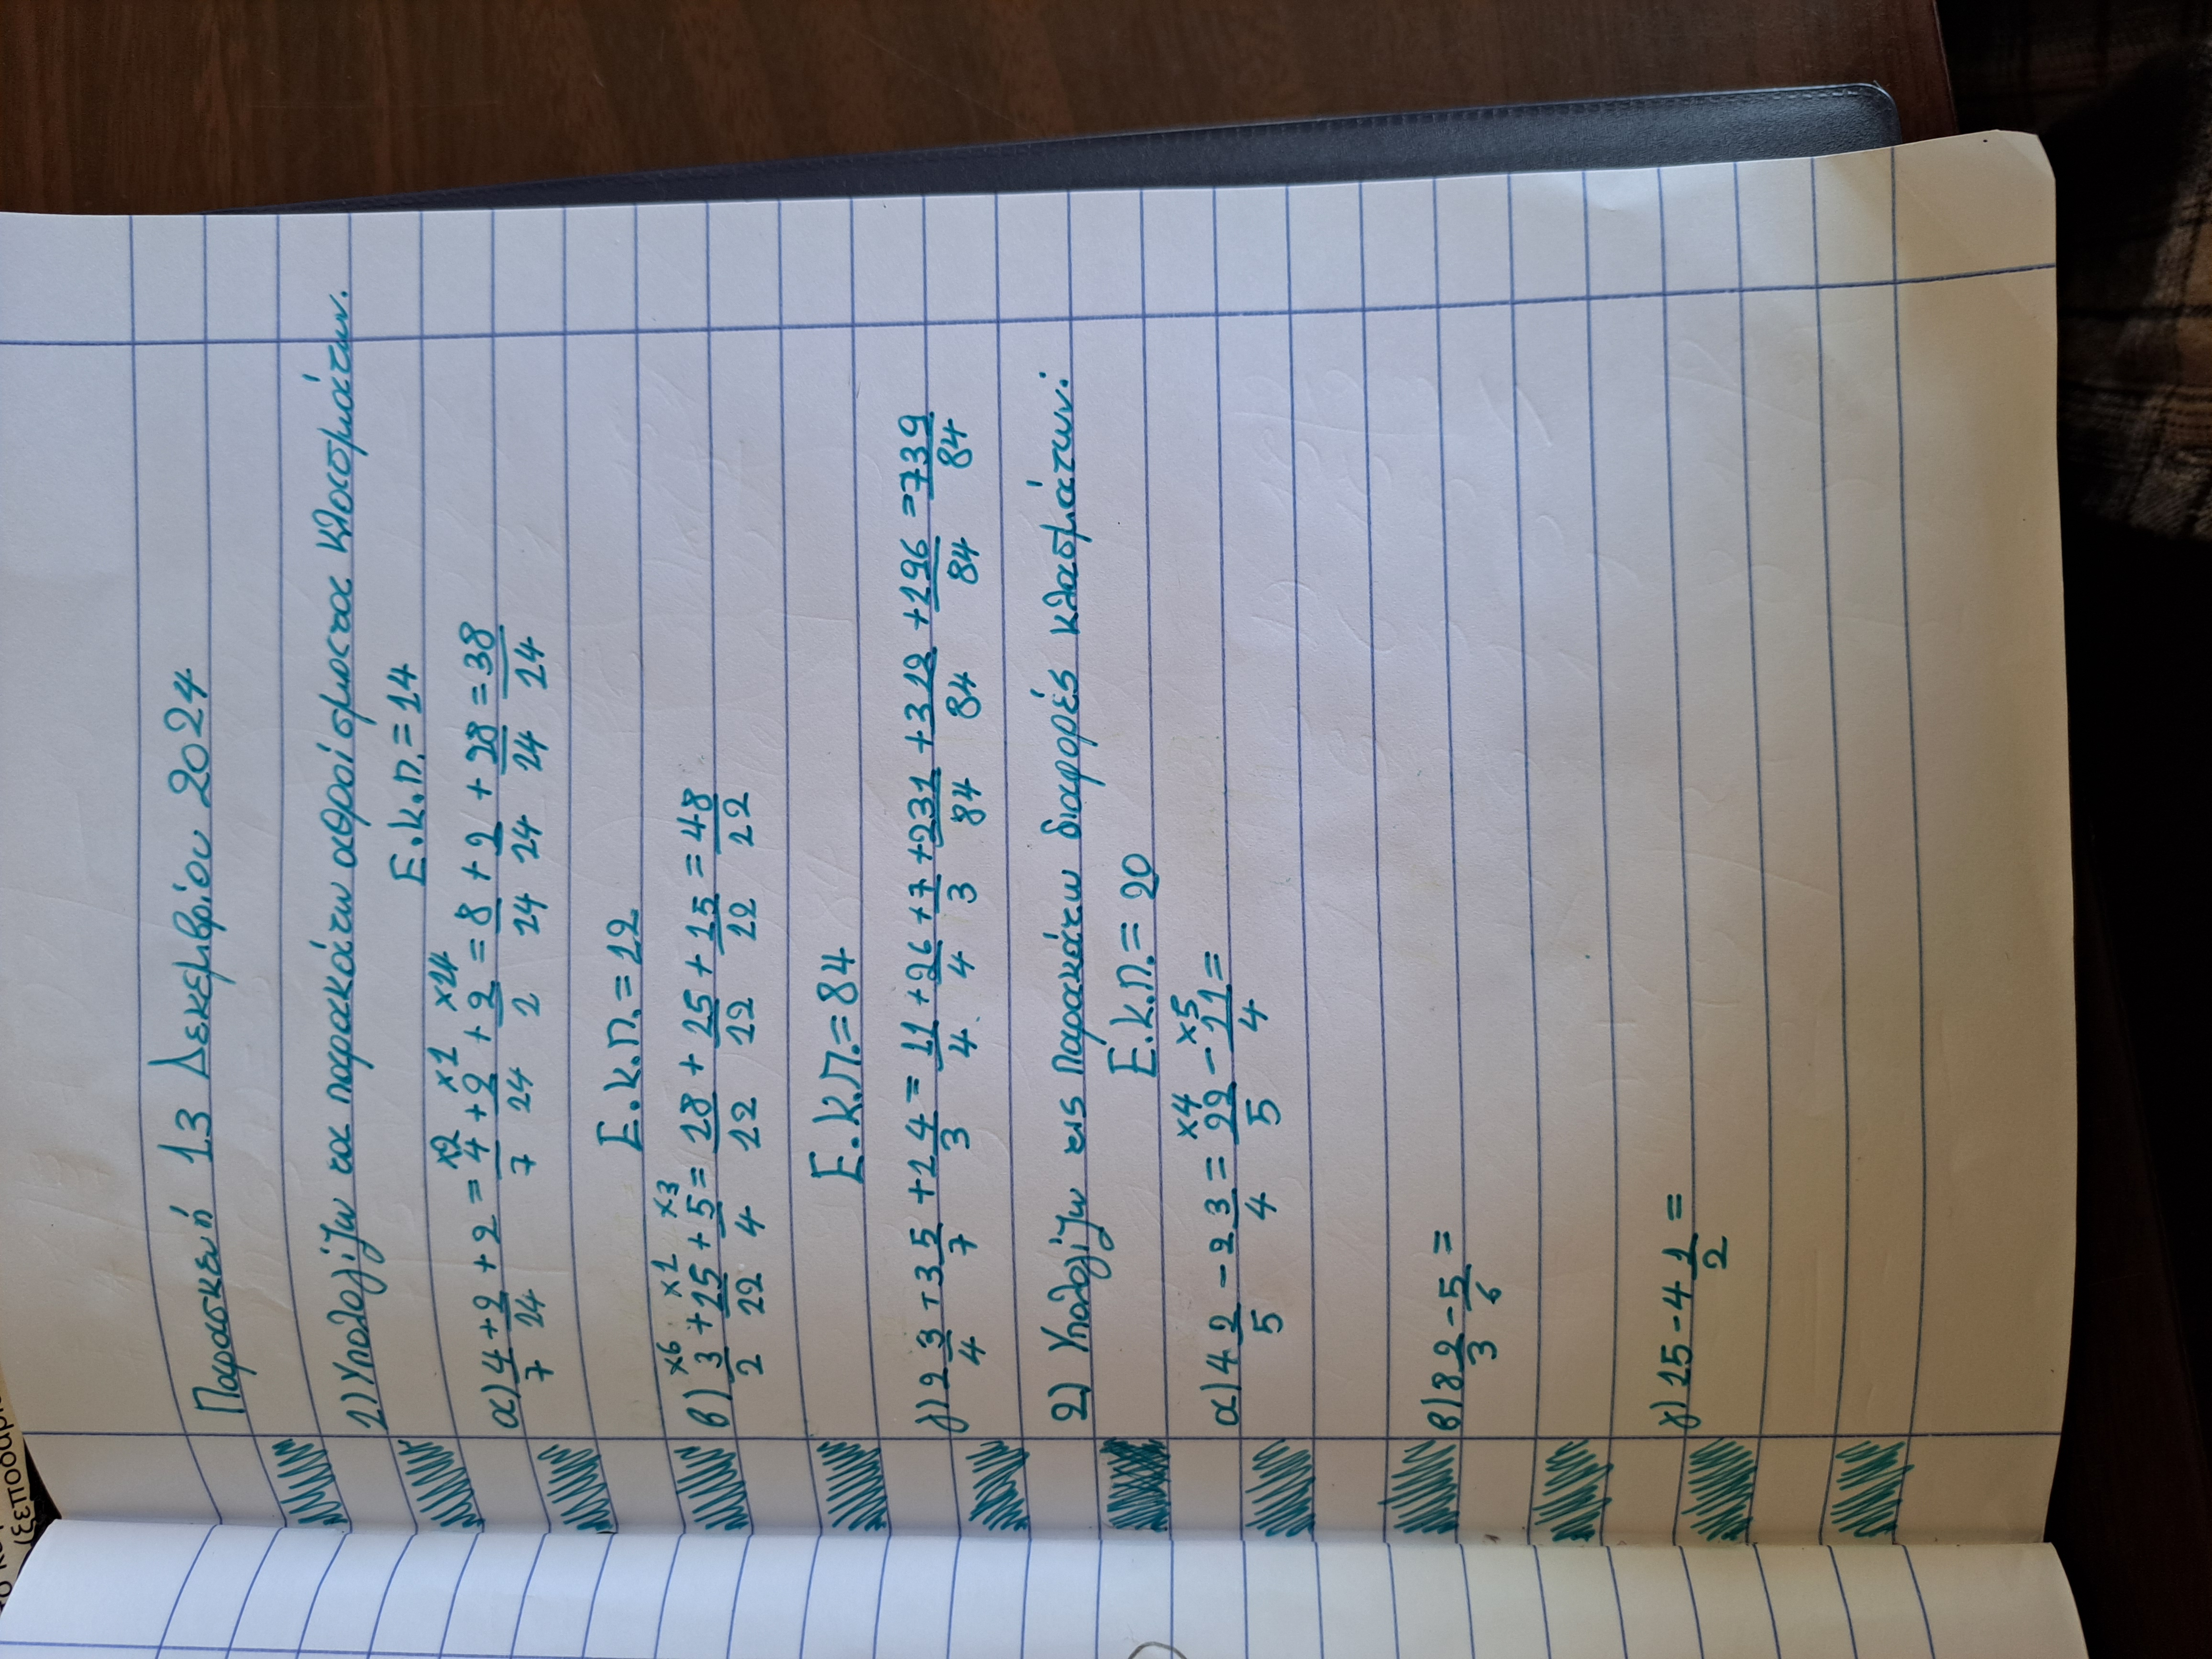 (ξεποδαρι
Παρασκευή 13 Δεκεμβρίου 2024
1) Υπολογίζω τα παρακάτω αθροίσματα κλασμάτων.
Ε.Κ.Π.=14
×2 ×1 ×14
α) 4/7 + 2/14 + 2 = 4/7 + 2/14 + 2/1 = 8/14 + 2/14 + 28/14 = 38/14
Ε.Κ.Π.=12
×6 ×1 ×3
β) 3/2 + 15/12 + 5/4 = 18/12 + 15/12 + 15/12 = 48/12
Ε.Κ.Π.=84
γ) 2 3/4 + 3 5/7 + 1 4/3 = 11/4 + 26/4 + 7/3 + 231/84 + 312/84 + 196/84 = 739/84
2) Υπολογίζω τις παρακάτω διαφορές κλασμάτων:
Ε.Κ.Π.= 20
×4 ×5
α) 4 2/5 - 2 3/4 = 22/5 - 11/4 =
β) 8 2/3 - 5/6 =
γ) 15 - 4 1/2 =